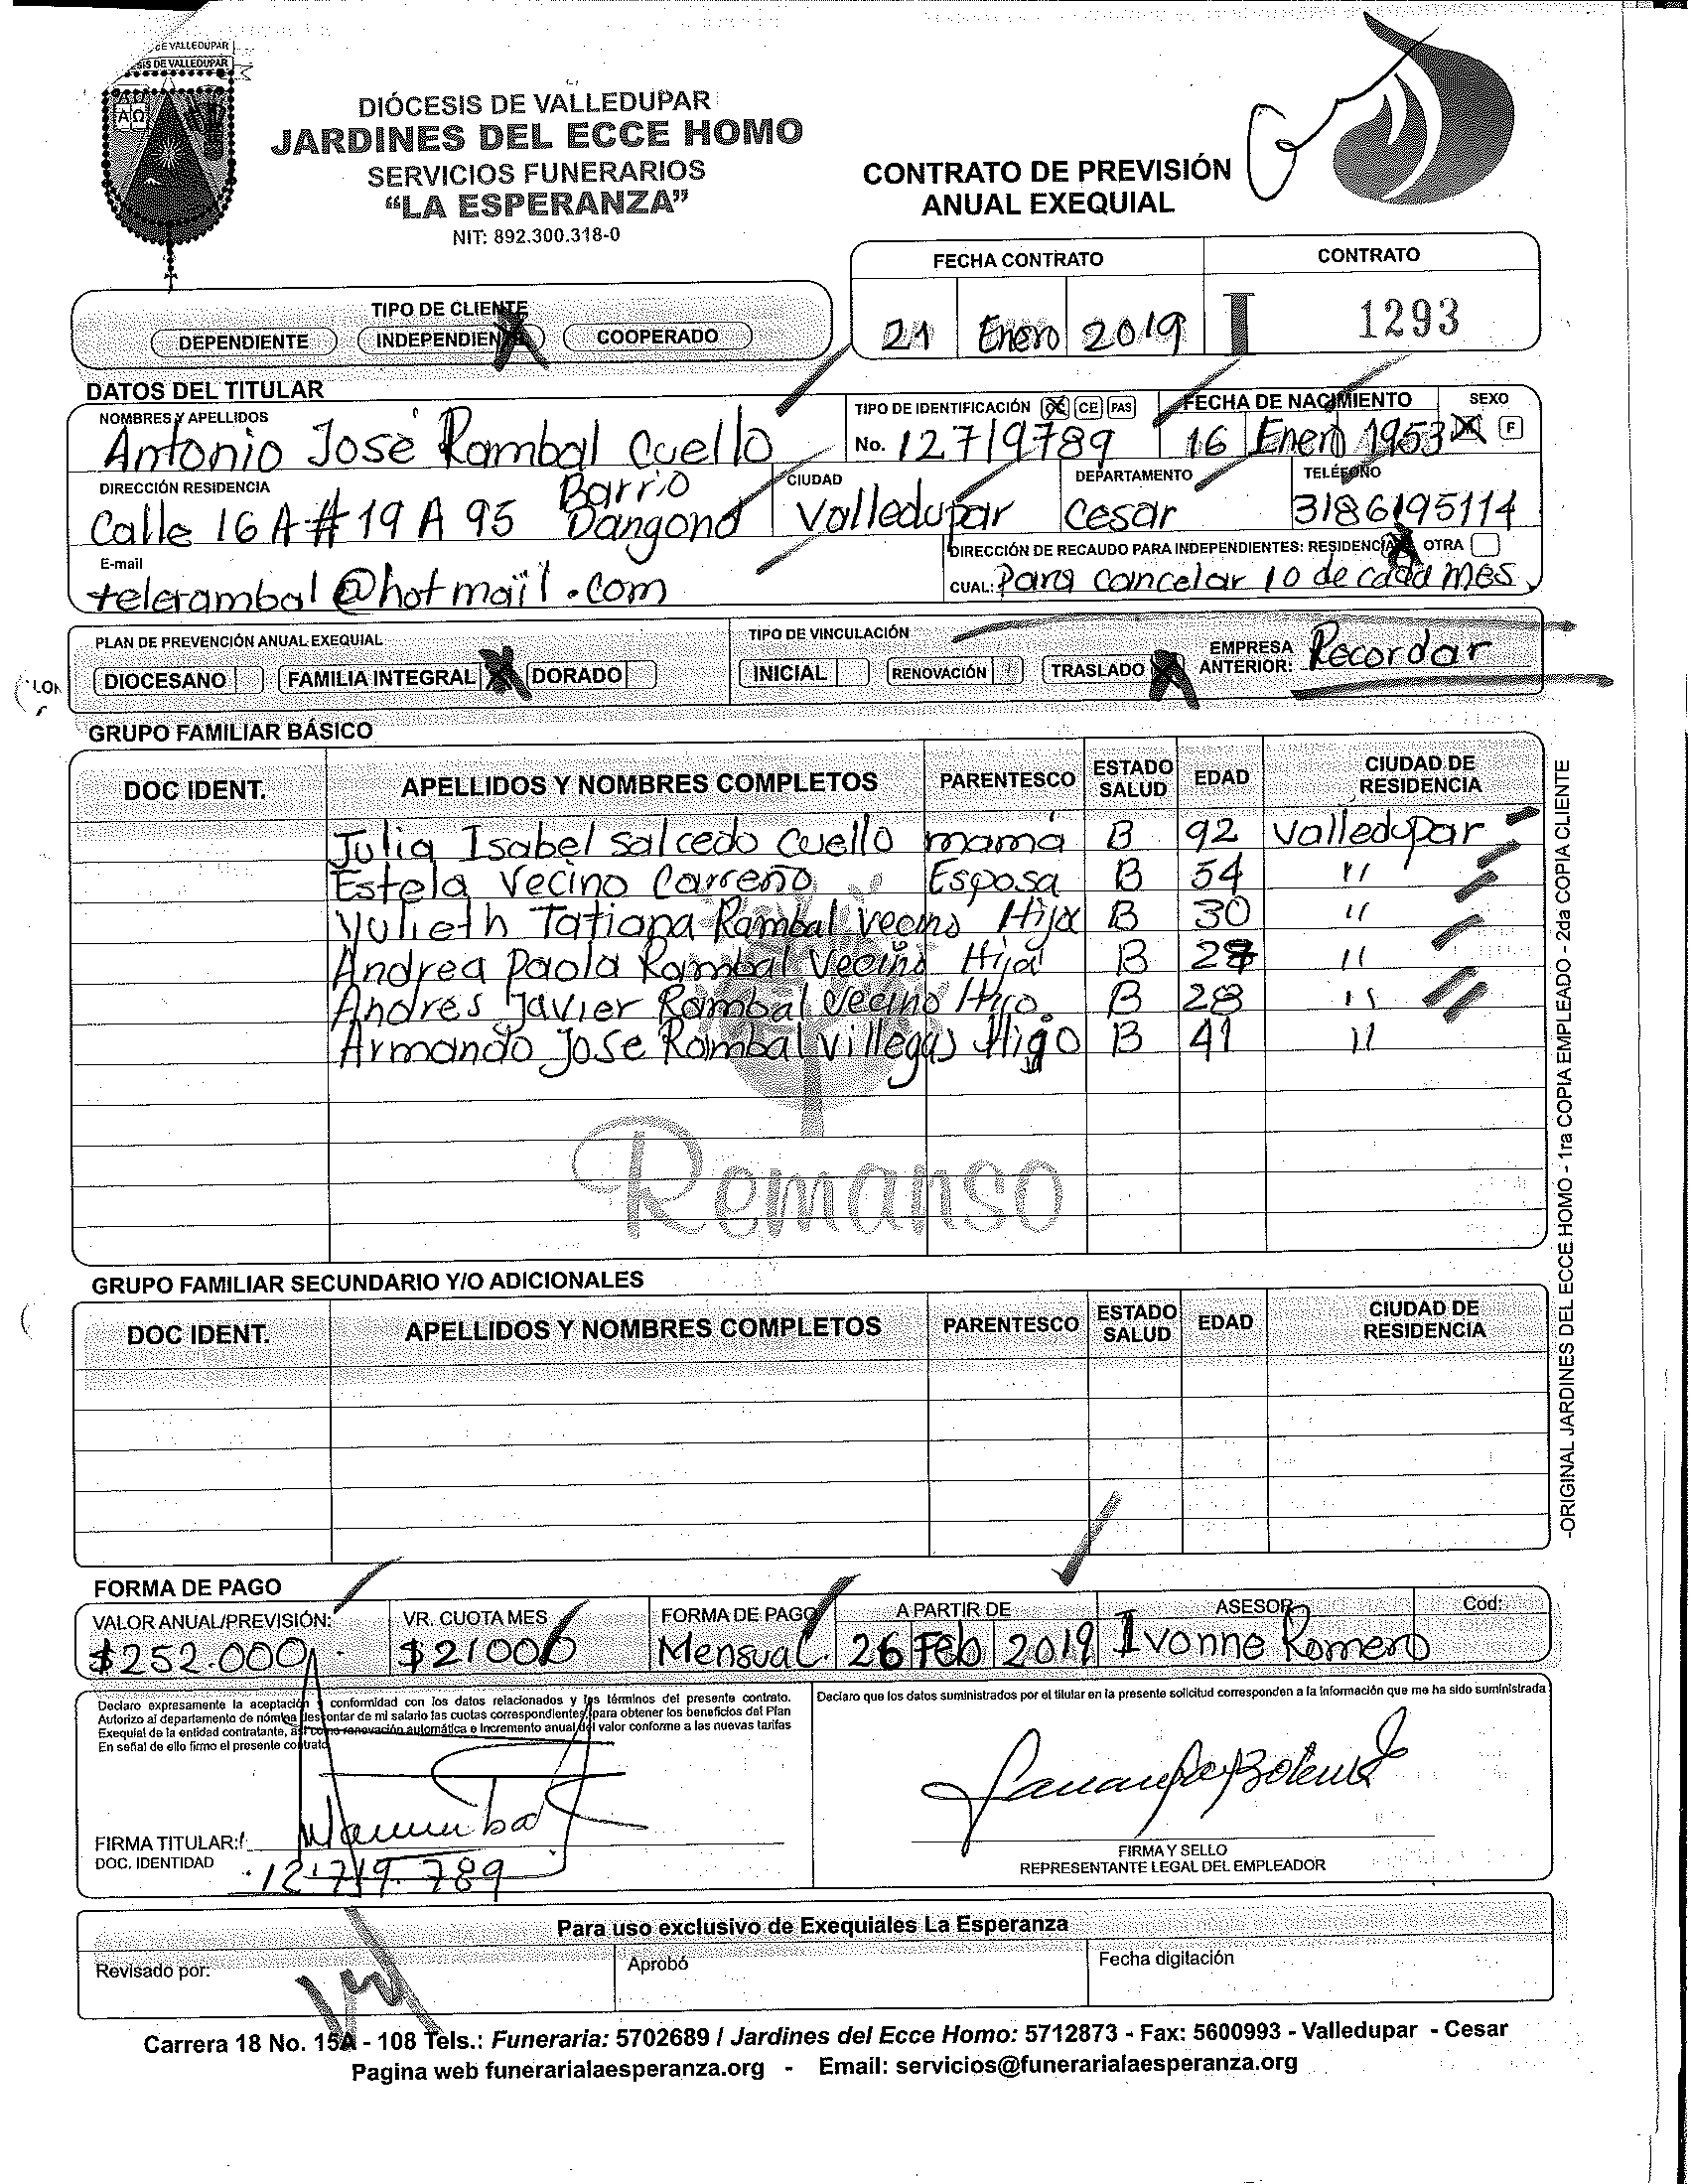 DE VALLEDUPAR
SIS DE VALLEDUPAR
A Ω
DIÓCESIS DE VALLEDUPAR
JARDINES DEL ECCE HOMO
SERVICIOS FUNERARIOS
“LA ESPERANZA”
NIT: 892.300.318-0
CONTRATO DE PREVISIÓN
ANUAL EXEQUIAL
FECHA CONTRATO CONTRATO
21 Enero 2019 I 1293
TIPO DE CLIENTE
DEPENDIENTE INDEPENDIEN X COOPERADO
DATOS DEL TITULAR
NOMBRES Y APELLIDOS TIPO DE IDENTIFICACIÓN CC CE PAS FECHA DE NACIMIENTO SEXO
Antonio Jose Rambal Cuello No. 12719789 16 Enero 1953 X F
DIRECCIÓN RESIDENCIA CIUDAD DEPARTAMENTO TELÉFONO
Calle 16 A # 19 A 95 Barrio Dangond Valledupar Cesar 3186195114
E-mail DIRECCIÓN DE RECAUDO PARA INDEPENDIENTES: RESIDENCIA X OTRA
telerambal@hotmail.com CUAL: Para cancelar 10 de cada mes
PLAN DE PREVENCIÓN ANUAL EXEQUIAL TIPO DE VINCULACIÓN
DIOCESANO FAMILIA INTEGRAL X DORADO INICIAL RENOVACIÓN TRASLADO X EMPRESA ANTERIOR: Recordar
GRUPO FAMILIAR BÁSICO
DOC IDENT. APELLIDOS Y NOMBRES COMPLETOS PARENTESCO ESTADO SALUD EDAD CIUDAD DE RESIDENCIA
Julia Isabel Salcedo Cuello mamá B 92 Valledupar
Estela Vecino Carreño Esposa B 54 "
Yulieth Tatiana Rambal Vecino Hija B 30 "
Andrea Paola Rambal Vecino Hija B 27 "
Andres Javier Rambal Vecino Hijo B 28 "
Armando Jose Rambal Villegas Higo B 41 "
Remanso
GRUPO FAMILIAR SECUNDARIO Y/O ADICIONALES
DOC IDENT. APELLIDOS Y NOMBRES COMPLETOS PARENTESCO ESTADO SALUD EDAD CIUDAD DE RESIDENCIA
-ORIGINAL JARDINES DEL ECCE HOMO - 1ra COPIA EMPLEADO - 2da COPIA CLIENTE
FORMA DE PAGO
VALOR ANUAL/PREVISIÓN: VR. CUOTA MES FORMA DE PAGO A PARTIR DE ASESOR Cod:
$252.000 $21000 Mensual. 26 Feb 2019 Ivonne Romero
Declaro expresamente la aceptación y conformidad con los datos relacionados y los términos del presente contrato.
Autorizo al departamento de nómina descontar de mi salario las cuotas correspondientes para obtener los beneficios del Plan
Exequial de la entidad contratante, así como renovación automática e incremento anual del valor conforme a las nuevas tarifas
En señal de ello firmo el presente contrato
Declaro que los datos suministrados por el titular en la presente solicitud corresponden a la información que me ha sido suministrada
FIRMA TITULAR:
DOC. IDENTIDAD 12.719.789
FIRMA Y SELLO
REPRESENTANTE LEGAL DEL EMPLEADOR
Para uso exclusivo de Exequiales La Esperanza
Revisado por: Aprobó Fecha digitación
Carrera 18 No. 15A - 108 Tels.: Funeraria: 5702689 / Jardines del Ecce Homo: 5712873 - Fax: 5600993 - Valledupar - Cesar
Pagina web funerarialaesperanza.org - Email: servicios@funerarialaesperanza.org